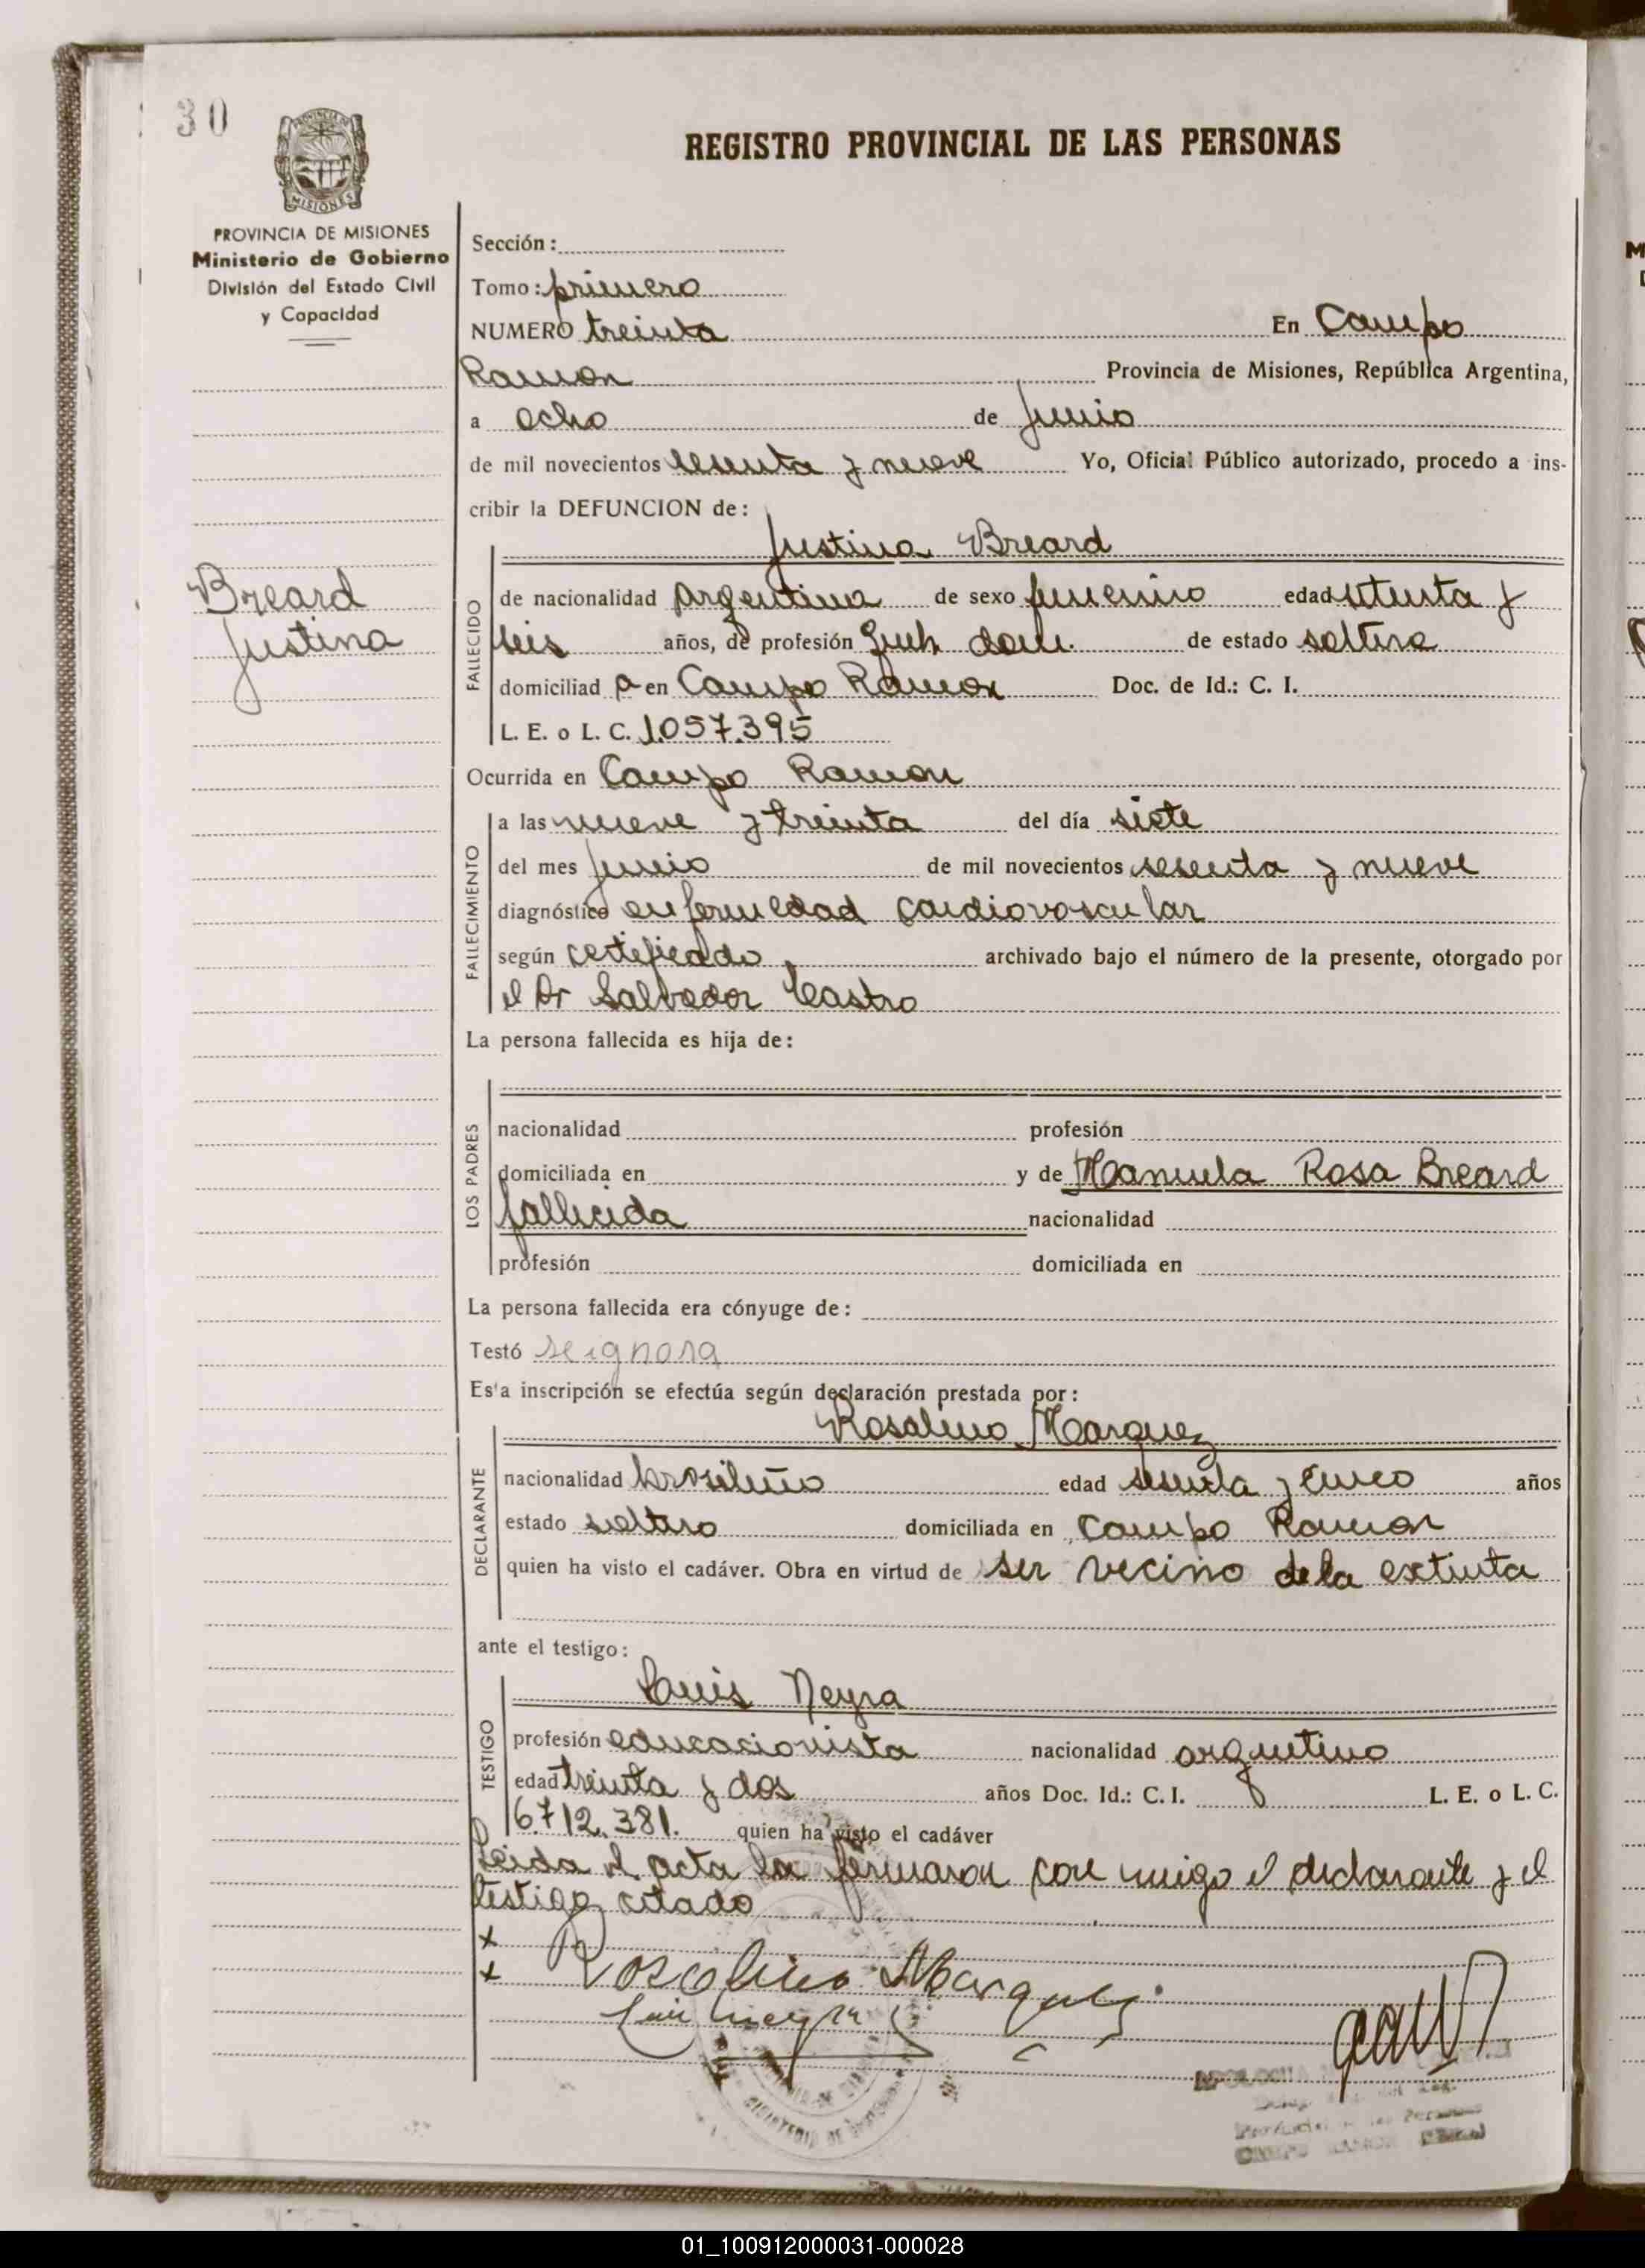 30
MISIONES
PROVINCIA DE MISIONES
Ministerio de Gobierno
División del Estado Civil
y Capacidad
Breard
Justina
REGISTRO PROVINCIAL DE LAS PERSONAS
Sección:
Tomo: primero
NUMERO treinta En Campo
Ramon Provincia de Misiones, República Argentina,
a ocho de Junio
de mil novecientos sesenta y nueve Yo, Oficial Público autorizado, procedo a ins-
cribir la DEFUNCION de:
Justina Breard
FALLECIDO
de nacionalidad Argentina de sexo femenino edad setenta y
seis años, de profesión Queh dom. de estado soltera
domiciliad a en Campo Ramon Doc. de Id.: C. I.
L. E. o L. C. 1.057.395
Ocurrida en Campo Ramon
FALLECIMIENTO
a las nueve y treinta del día siete
del mes Junio de mil novecientos sesenta y nueve
diagnóstico enfermedad cardiovascular
según certificado archivado bajo el número de la presente, otorgado por
el Dr Salvador Castro
La persona fallecida es hija de:
LOS PADRES
nacionalidad profesión
domiciliada en y de Manuela Rosa Breard
fallecida nacionalidad
profesión domiciliada en
La persona fallecida era cónyuge de:
Testó se ignora
Esta inscripción se efectúa según declaración prestada por:
Rosalino Marquez
DECLARANTE
nacionalidad brasileño edad sesenta y cinco años
estado soltero domiciliada en Campo Ramon
quien ha visto el cadáver. Obra en virtud de ser vecino de la extinta
ante el testigo:
Luis Neyra
TESTIGO
profesión educacionista nacionalidad argentino
edad treinta y dos años Doc. Id.: C. I. L. E. o L. C.
6.712.381. quien ha visto el cadáver
Leida el acta la firmaron con migo el declarante y el
testigo citado
x Rosalino Marquez
x Luis Neyra
MINISTERIO DE
01_100912000031-000028